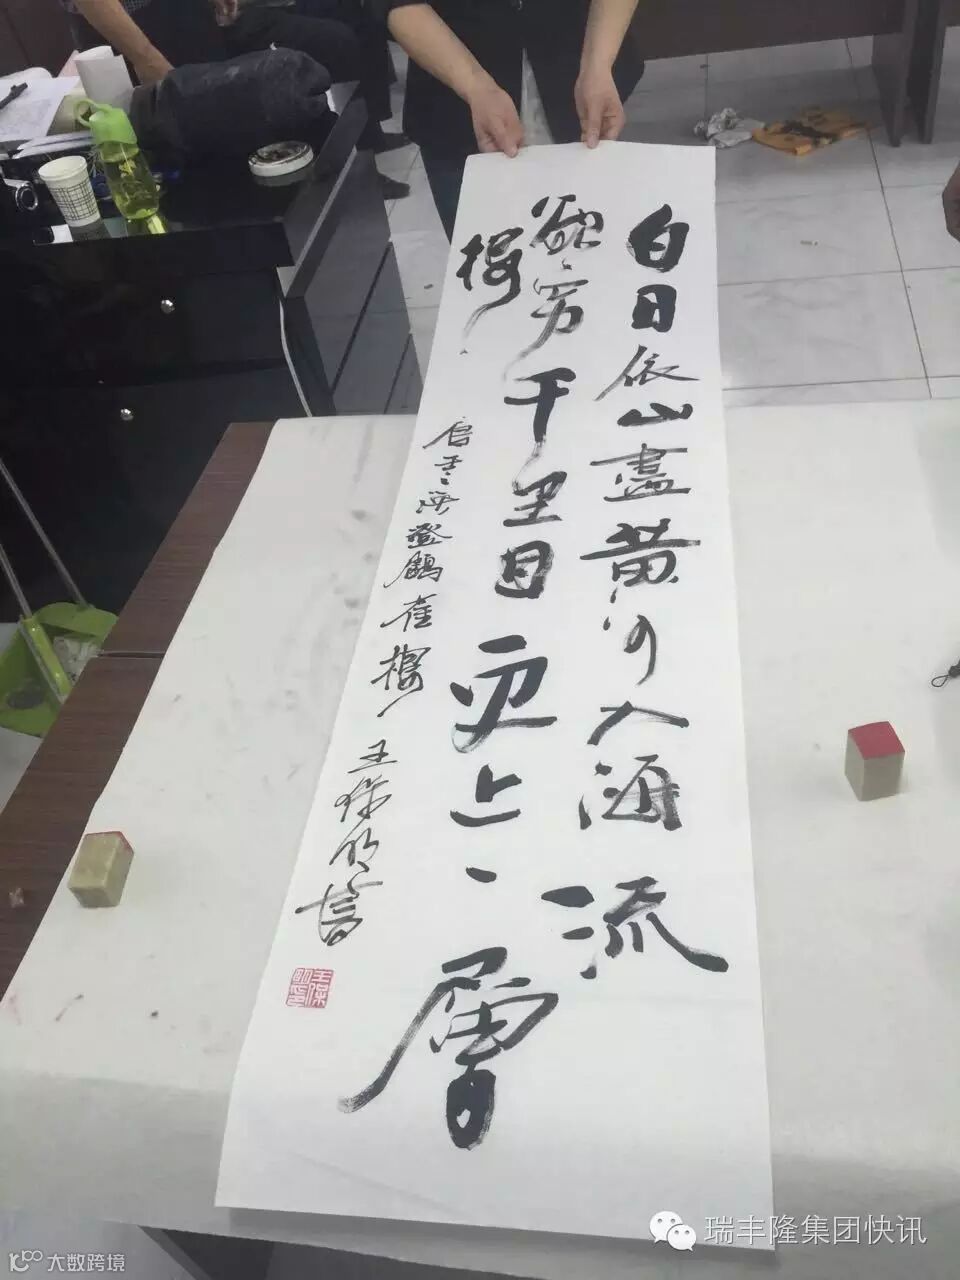 白日依山盡黄河入海流
欲穷千里目更上一層
楼
唐王之涣登鹳雀楼
王保明書
王保明印
瑞丰隆集团快讯
100 大数跨境